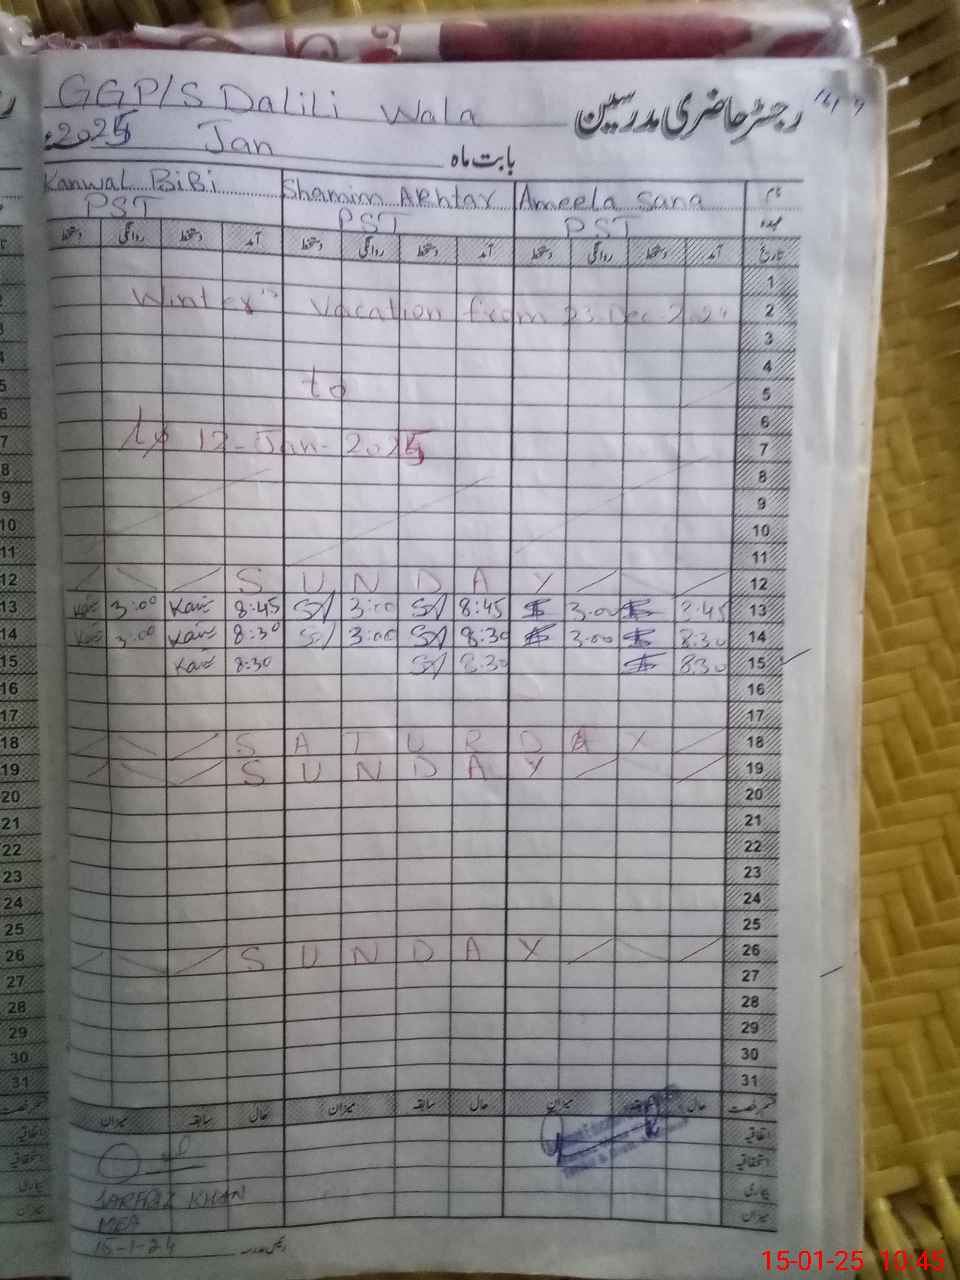 GGP/S Dalili Wala
رجسٹر حاضری مدرسین
2025 Jan بابت ماہ
Kanwal BiBi Shamim Akhtar Ameela Sana نام
PST PST PST عہدہ
دستخط روانگی دستخط آمد دستخط روانگی دستخط آمد دستخط روانگی دستخط آمد تاریخ
1
Winter Vacation from 23 Dec 2024 2
3
4
to 5
6
12-Jan-2025 7
8
9
10
11
12 SUNDAY 12
13 Kan 3:00 Kan 8:45 SA 3:00 SA 8:45 3:00 8:45 13
14 Kan 3:00 Kan 8:30 SA 3:00 SA 8:30 3:00 8:30 14
15 Kan 8:30 SA 8:30 8:30 15
16 16
17 17
18 SATURDAY 18
19 SUNDAY 19
20 20
21 21
22 22
23 23
24 24
25 25
26 SUNDAY 26
27 27
28 28
29 29
30 30
31 31
میزان سابقہ حال میزان سابقہ حال میزان سابقہ حال
اتفاقیہ
استحقاقیہ
بیماری
میزان
SARFRAZ KHAN
MEA
15-1-24
15-01-25 10:45